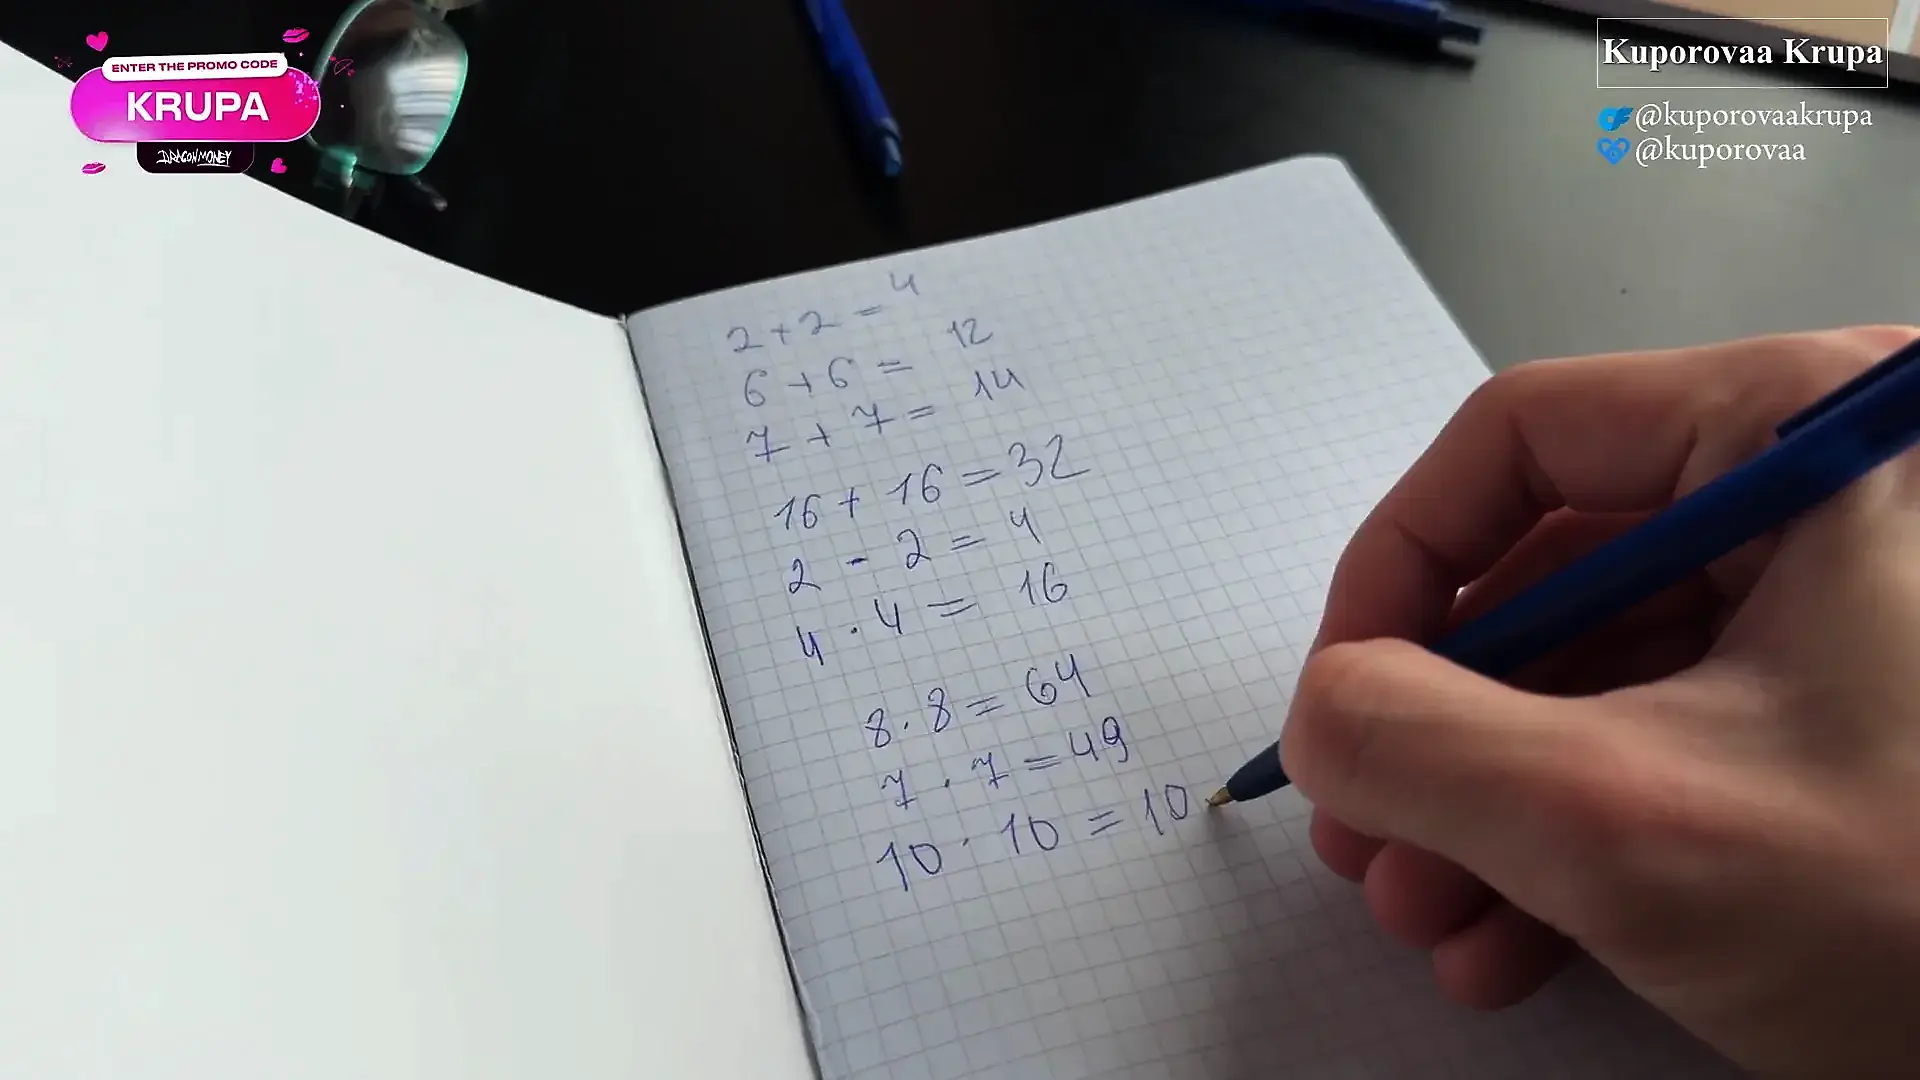 ENTER THE PROMO CODE
KRUPA
DRAGONMONEY
Kuporovaa Krupa
@kuporovaakrupa
@kuporovaa
2 + 2 = 4
6 + 6 = 12
7 + 7 = 14
16 + 16 = 32
2 - 2 = 4
4 · 4 = 16
8 · 8 = 64
7 · 7 = 49
10 · 10 = 10